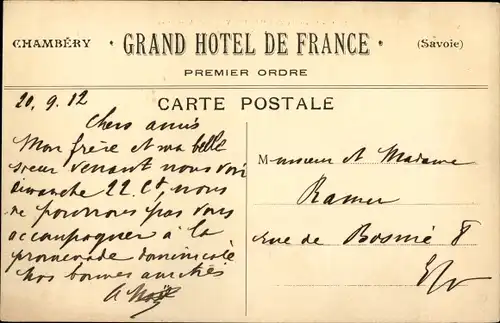 CHAMBÉRY · GRAND HOTEL DE FRANCE · (Savoie)
PREMIER ORDRE
CARTE POSTALE
20. 9. 12
Chers amis
Mon frère et ma belle
sœur venant nous voir
dimanche 22 Ct, nous
ne pouvons pas vous
accompagner à la
promenade dominicale
Nos bonnes amitiés
A
Monsieur et Madame
Ramer
rue de Bosnie 8
E/v